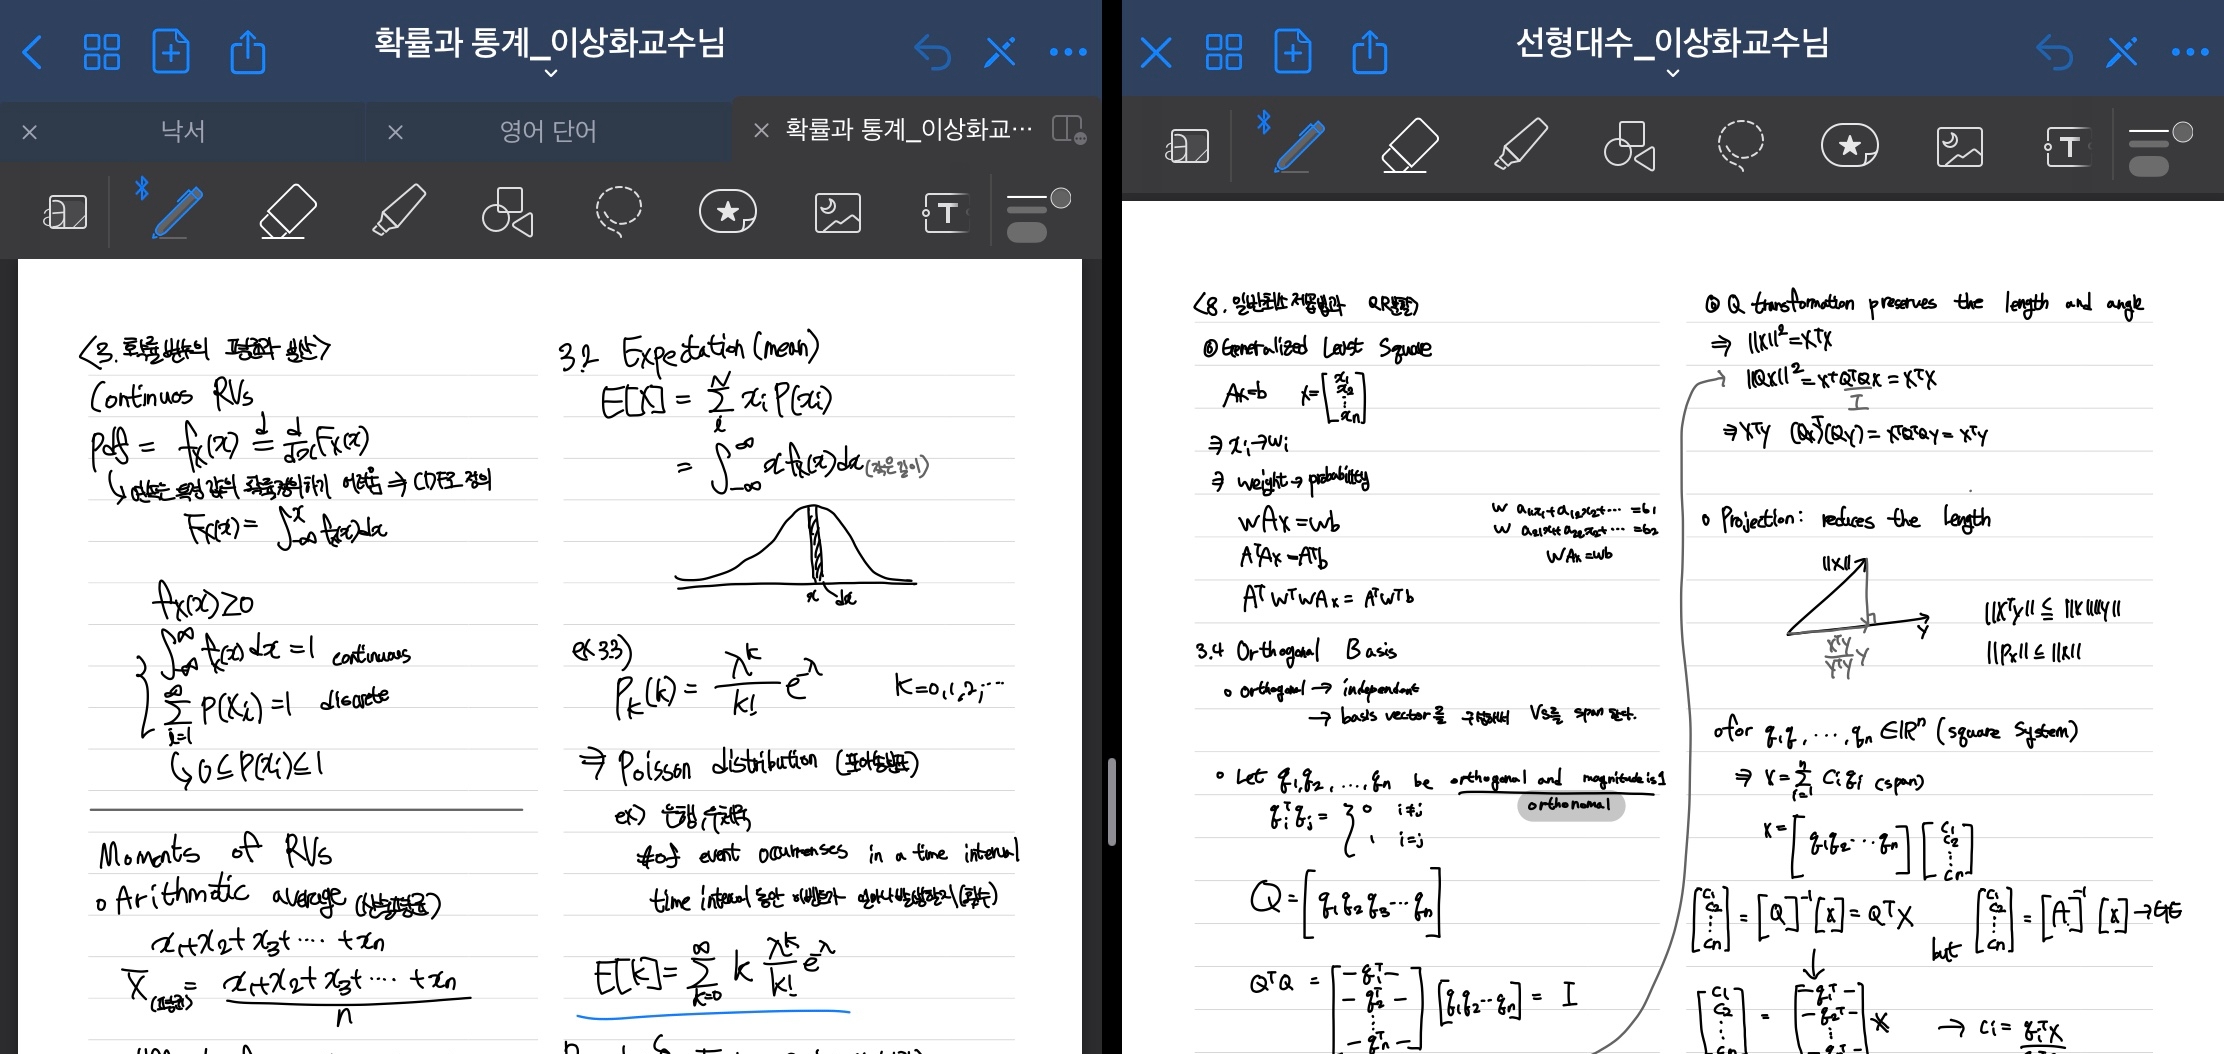 확률과 통계_이상화교수님
낙서
영어 단어
확률과 통계_이상화교…
T
<3. 확률변수의 평균과 분산>
Continuos RVs
Pdf = fx(x) ≜ d/dx Fx(x)
특정 값의 확률정의하기 어려움 ⇒ CDF로 정의
Fx(x) = ∫_-∞^x fx(x)dx
fx(x) ≥ 0
∫_-∞^∞ fx(x)dx = 1 continuous
∑_i=1^∞ P(Xi) = 1 discrete
↳ 0 ≤ P(xi) ≤ 1
Moments of RVs
o Arithmatic average (산술평균)
x1+x2+x3+⋯+xn
X̄(평균) = x1+x2+x3+⋯+xn / n
3.2 Expectation (mean)
E[X] = ∑_i^N xi P(xi)
= ∫_-∞^∞ x fx(x)dx (작은길이)
x dx
ex 3.3)
Pk(k) = λ^k/k! e^-λ K=0,1,2,⋯
⇒ Poisson distribution (포아송분포)
ex) 은행, 우체국
#of event occurrenses in a time interval
time interval 동안 이벤트가 일어나 발생할지 (횟수)
E[k] = ∑_k=0^∞ k λ^k/k! e^-λ
선형대수_이상화교수님
T
<8. 일반최소제곱법과 QR분할>
⊙ Generalized Least Square
Ax=b x=[x1 x2 ⋮ xn]
⇒ xi → wi
⇒ weight → probability
wAx = wb
w a11x1+a12x2+⋯ = b1
w a21x1+a22x2+⋯ = b2
WAx = wb
AᵀAx = Aᵀb
AᵀWᵀWAx = AᵀWᵀb
3.4 Orthogonal Basis
o orthogonal → independent
→ basis vector를 구성해서 Vs를 span 한다.
o Let q1,q2, …, qn be orthogonal and magnitude is 1
orthonomal
qiᵀqj = { 0 i≠j
1 i=j
Q = [q1 q2 q3 ⋯ qn]
QᵀQ = [-q1ᵀ- -q2ᵀ- ⋮ -qnᵀ-] [q1 q2 ⋯ qn] = I
⊙ Q transformation preserves the length and angle
⇒ ||x||² = xᵀx
||Qx||² = xᵀQᵀQx = xᵀx
I
⇒ xᵀy (Qx)ᵀ(Qy) = xᵀQᵀQy = xᵀy
o Projection: reduces the length
||x||
y
xᵀy/yᵀy y
||xᵀy|| ≤ ||x||||y||
||Px|| ≤ ||x||
o for q1,q2, ⋯, qn ∈ ℝⁿ (square system)
⇒ x = ∑_i=1^n ci qi (span)
x = [q1 q2 ⋯ qn] [c1 c2 ⋮ cn]
[c1 c2 ⋮ cn] = [Q]⁻¹[x] = Qᵀx but [c1 c2 ⋮ cn] = [A]⁻¹[x] → GE
[c1 c2 ⋮ cn] = [-q1ᵀ- -q2ᵀ- ⋮ -qnᵀ-] x → ci = qiᵀx